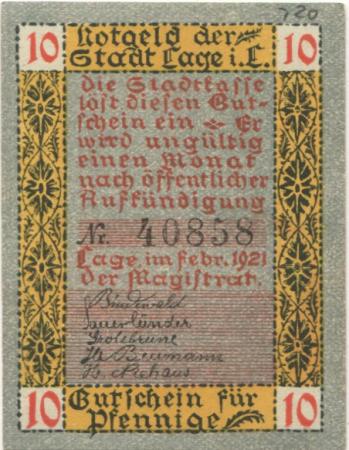 720
10 Notgeld der 10
Stadt Lage i. L.
die Stadtkasse
löst diesen Gut-
schein ein Er
wird ungültig
einen Monat
nach öffentlicher
Aufkündigung
Nr. 40858
Lage, im Febr. 1921
der Magistrat.
Sauerländer
Grotebrune
H. Baumann
H. Niehaus
10 Gutschein für 10
Pfennige